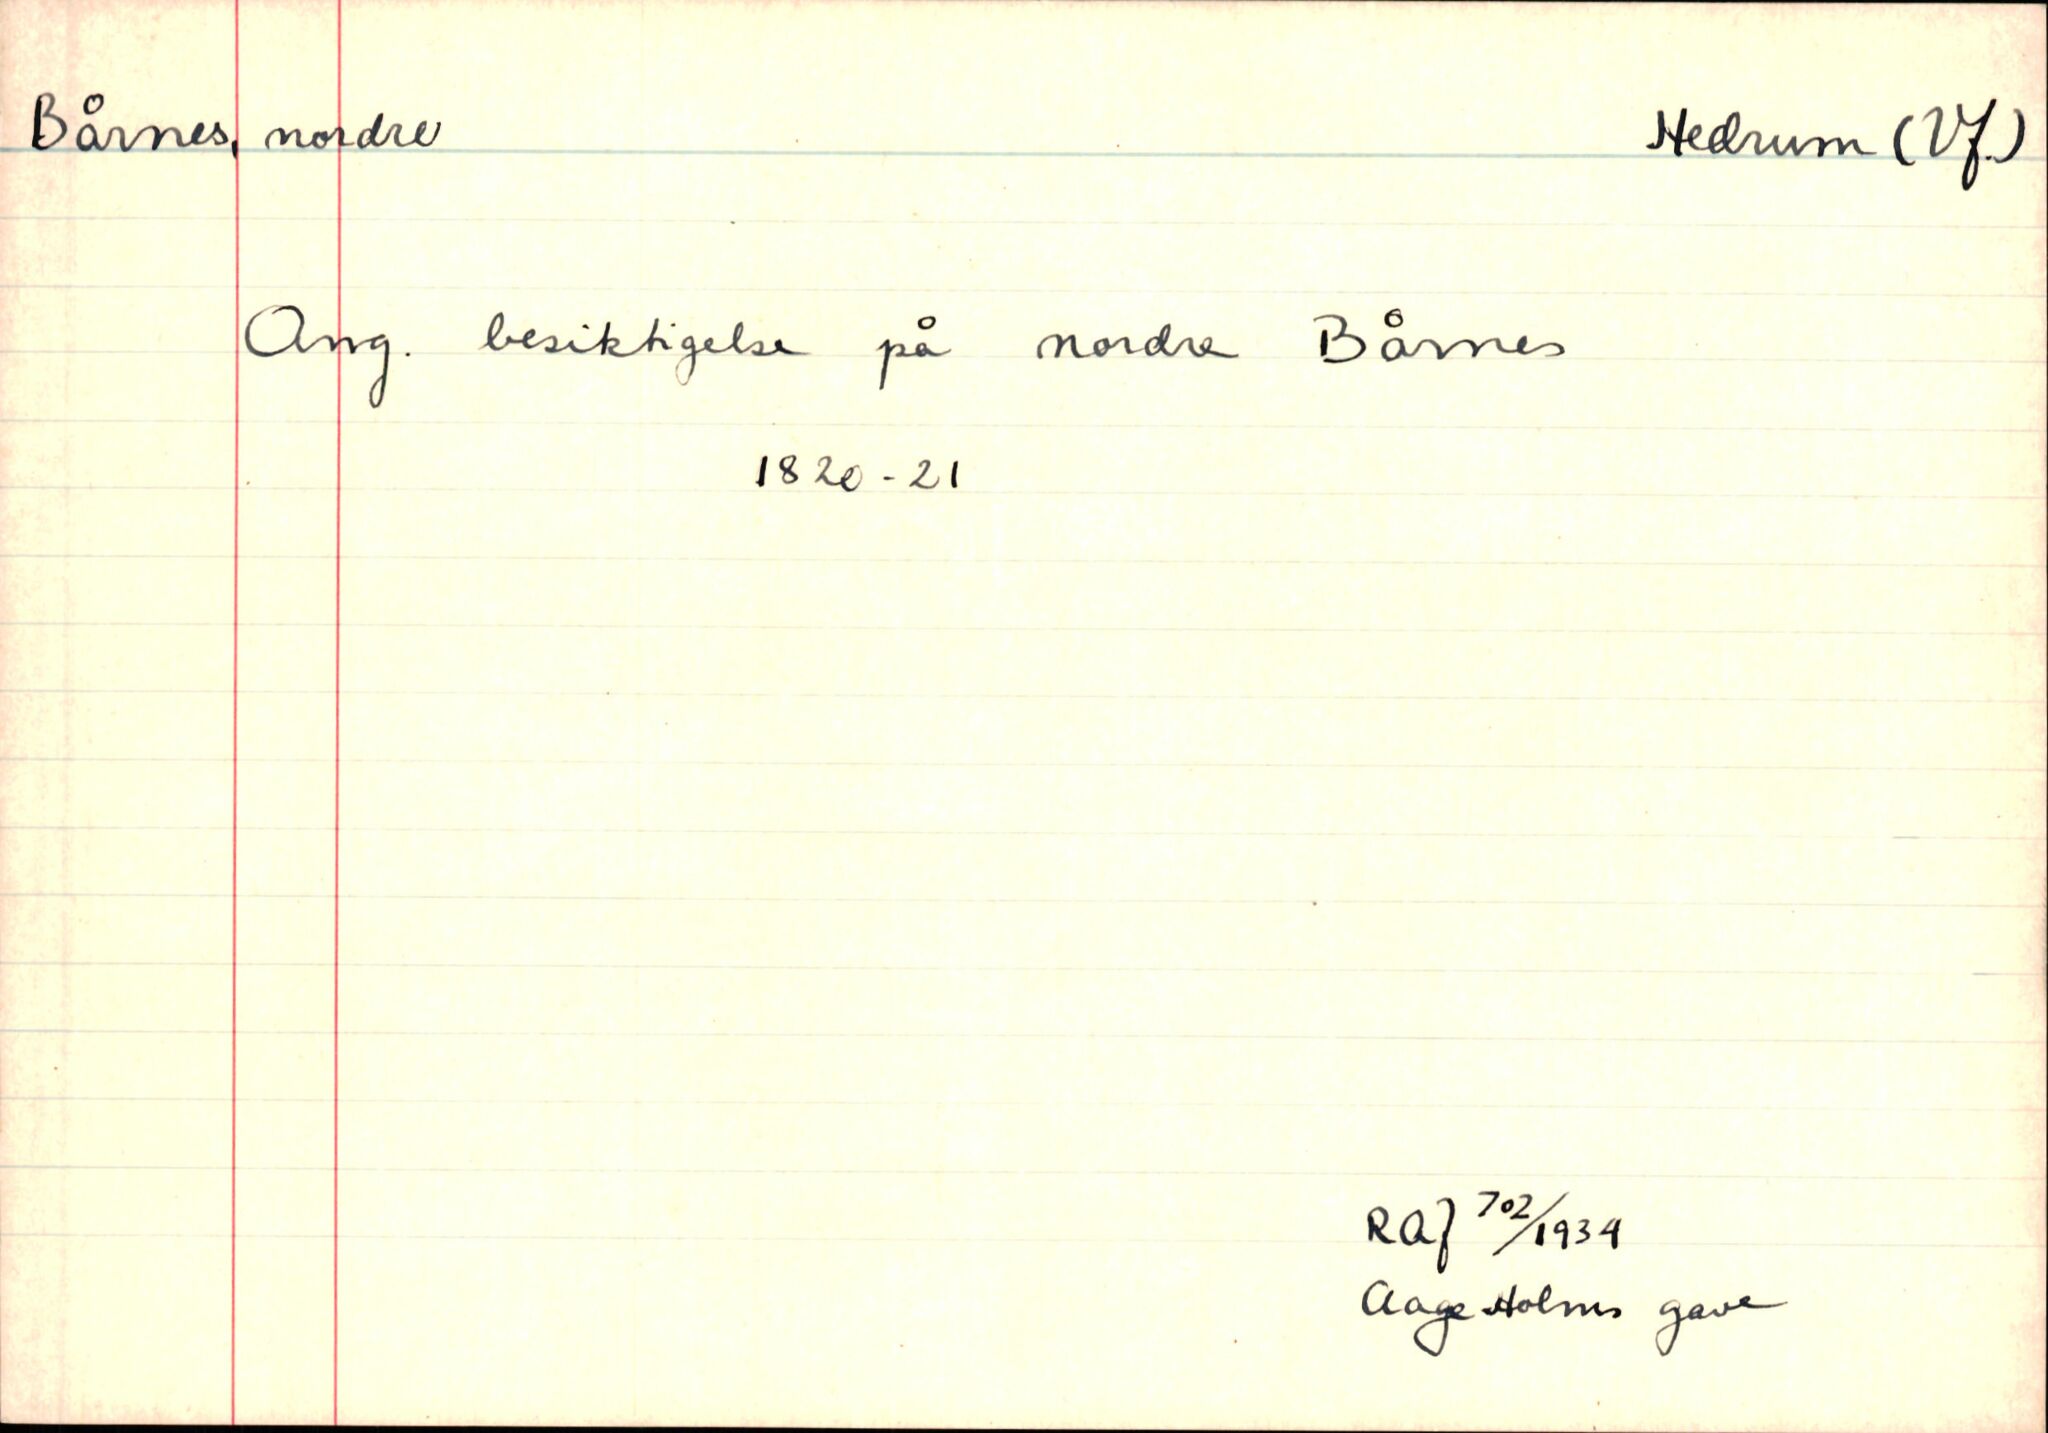 Bårnes, nordre Hedrum (Vf.)
Ang. besiktigelse på nordre Bårnes
1820-21
RAJ 702/1934
Aage Holms gave